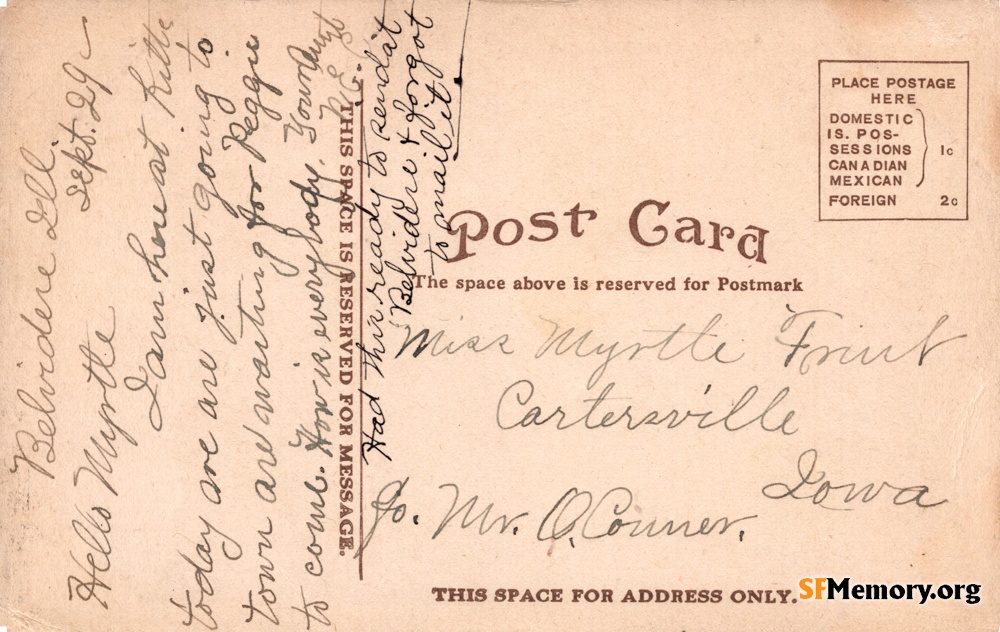 Belvidere Ill.
Sept. 29
Hello Myrtle
I am here at Kitts
today are are just going to
town and waiting for Peggie
to come. How is everybody. Your Aunt
Had this ready to send at
Belvidere & forgot
to mail it.
THIS SPACE IS RESERVED FOR MESSAGE.
PLACE POSTAGE
HERE
DOMESTIC
IS. POS-
SESSIONS
CANADIAN
MEXICAN
1c
FOREIGN 2c
Post Card
The space above is reserved for Postmark
Miss Myrtle Fruit
Cartersville
Iowa
℅. Mr. O. Conner.
THIS SPACE FOR ADDRESS ONLY.
SFMemory.org